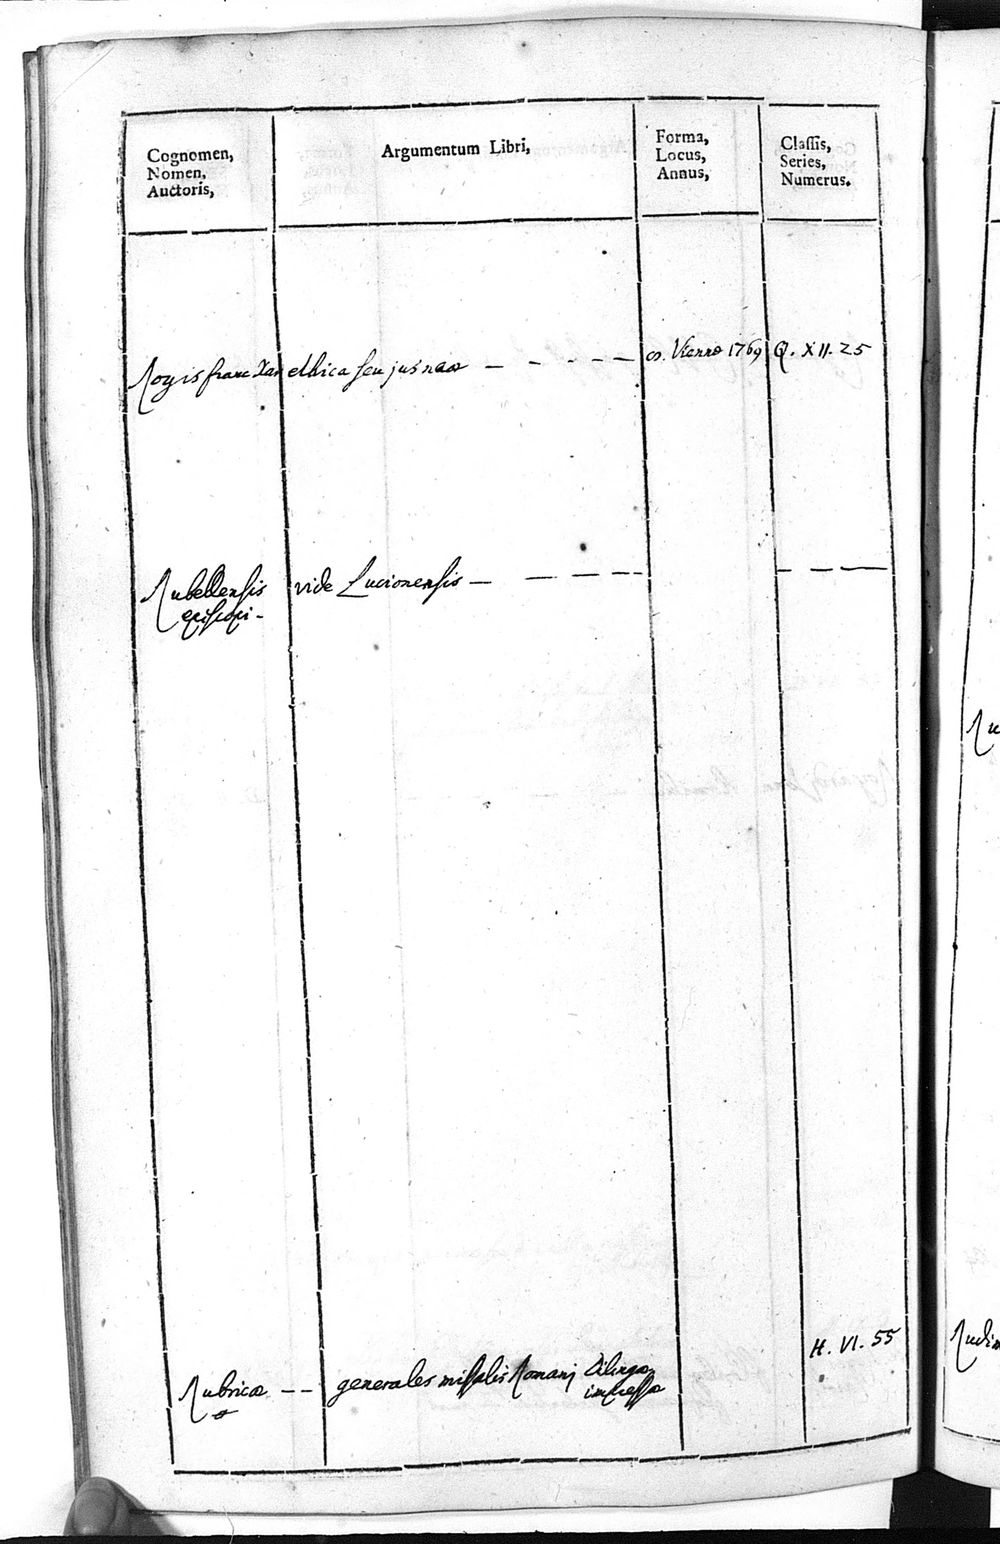 Cognomen,
Nomen,
Auctoris,
Argumentum Libri,
Forma,
Locus,
Annus,
Classis,
Series,
Numerus.
Roys franc Xav ethica seu jus nae — — — — 8. Viennae 1769 Q. XII. 25
Rubellensis vide Lucionensis — — — — — — —
episcopi-
H. VI. 55
Rubricae — — generales missalis Romanj Dilingae
impressae
Ru
Rudim